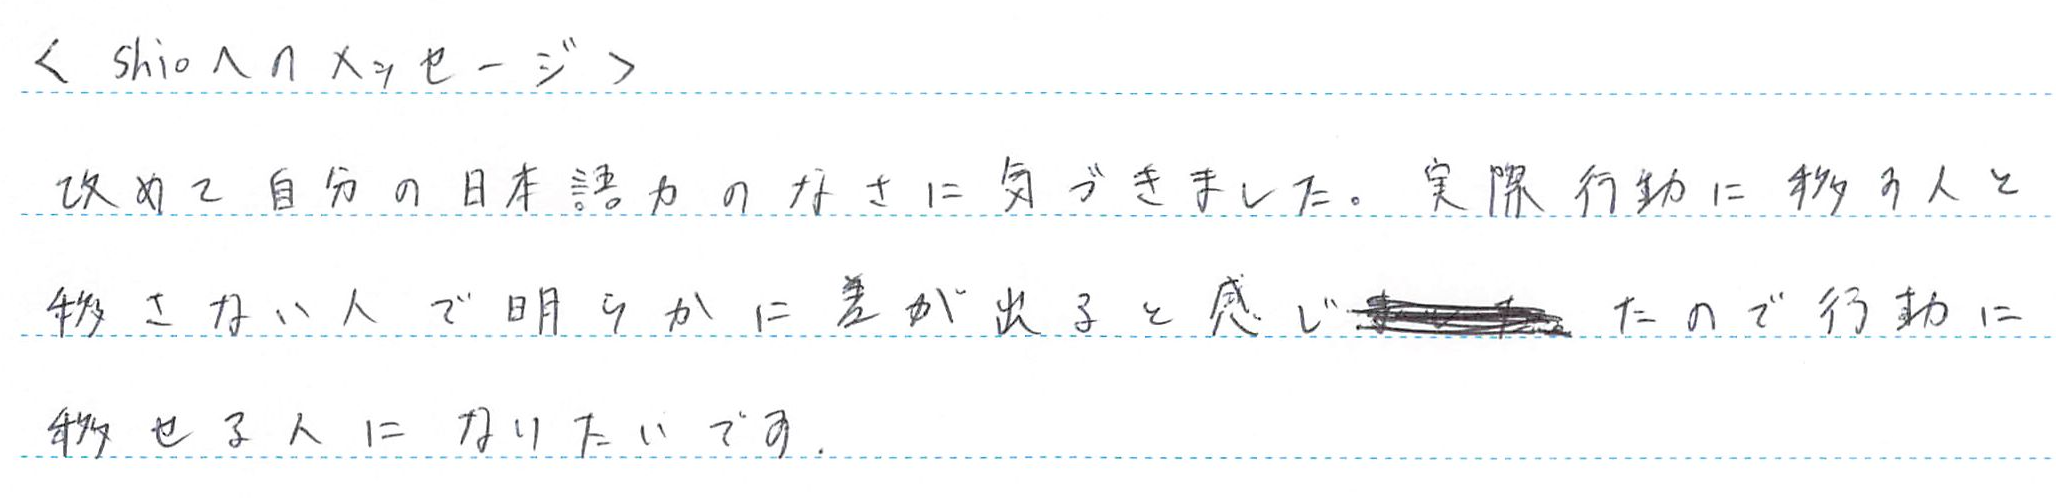 < shioへのメッセージ>
改めて自分の日本語力のなさに気づきました。実際行動に移す人と
移さない人で明らかに差が出ると感じたので行動に
移せる人になりたいです.